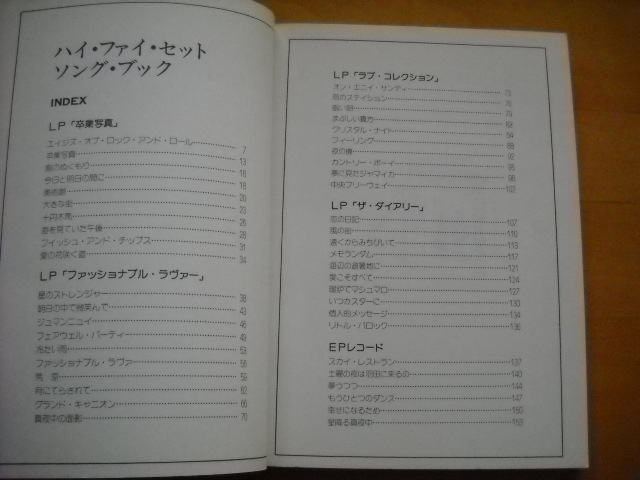 ハイ・ファイ・セット
ソング・ブック
INDEX
LP「卒業写真」
エイジズ・オブ・ロック・アンド・ロール 7
卒業写真 13
16
今日と明日の間に 18
美術館 20
大きな街 23
十円木馬 26
海を見ていた午後 28
フィッシュ・アンド・チップス 31
愛の花咲く道 34
LP「ファッショナブル・ラヴァー」
星のストレンジャー 38
朝日の中で微笑んで 43
ジュマンニュイ 46
フェアウェル・パーティ 49
冷たい雨 53
ファッショナブル・ラヴァー 56
荒涼 59
月にてらされて 62
グランド・キャニオン 66
真夜中の面影 70
LP「ラブ・コレクション」
オン・エニイ・サンディ 73
雨のステイション 76
79
まぶしい貴方
クリスタル・ナイト 84
フィーリング 88
夜の橋 92
カントリー・ボーイ 95
夢に見たジャマイカ 98
中央フリーウェイ 102
LP「ザ・ダイアリー」
恋の日記 107
風の街 110
遠くからみちびいて 113
メモランダム 117
海辺の避暑地に 121
愛こそすべて 124
暖炉でマシュマロ 127
いつカスターに 130
個人的メッセージ 134
リトル・バロック 136
EPレコード
スカイ・レストラン 137
土曜の夜は羽田に来るの 140
夢うつつ 144
もうひとつのダンス 147
幸せになるため 150
星降る真夜中 153